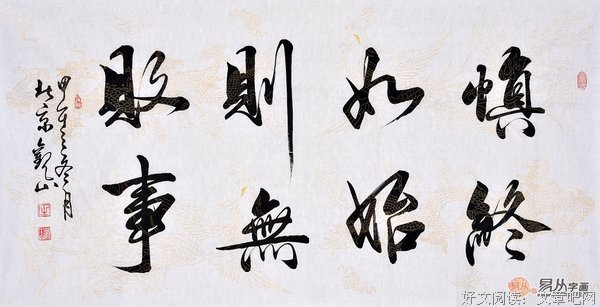 慎終
如始
則無
敗事
甲午之冬月
北京觀山
易从字画
好文阅读：文章吧网